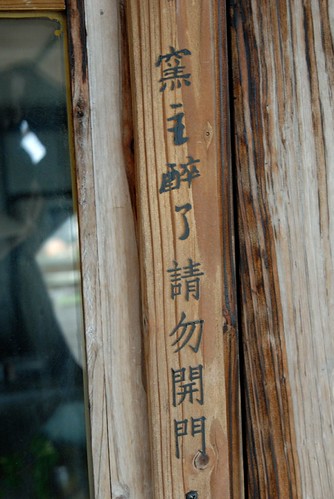 窯主醉了請勿開門